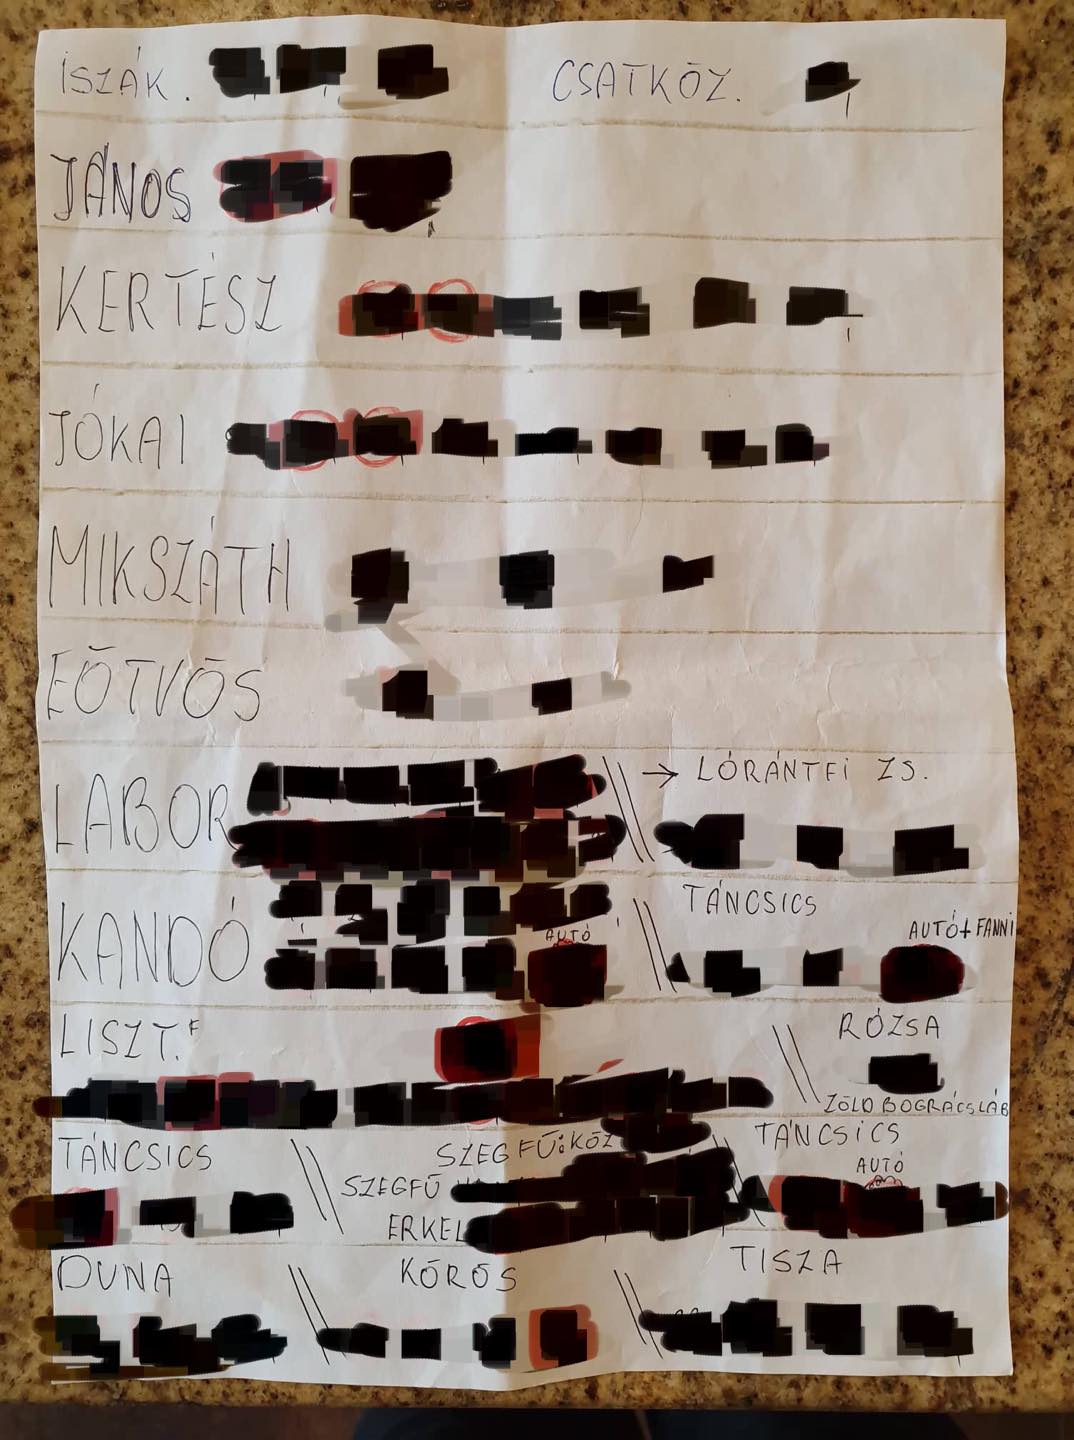 ISZÁK. CSATKÖZ.
JÁNOS
KERTÉSZ
JÓKAI
MIKSZÁTH
EÖTVÖS
LABOR → LÓRÁNTFI ZS.
KANDÓ AUTÓ TÁNCSICS AUTÓ+FANNI
LISZT.F RÓZSA
ZÖLD BOGRÁCSLÁB
TÁNCSICS SZEGFŰ:KÖZ TÁNCSICS
SZEGFŰ AUTÓ
ERKEL
DUNA KÖRÖS TISZA